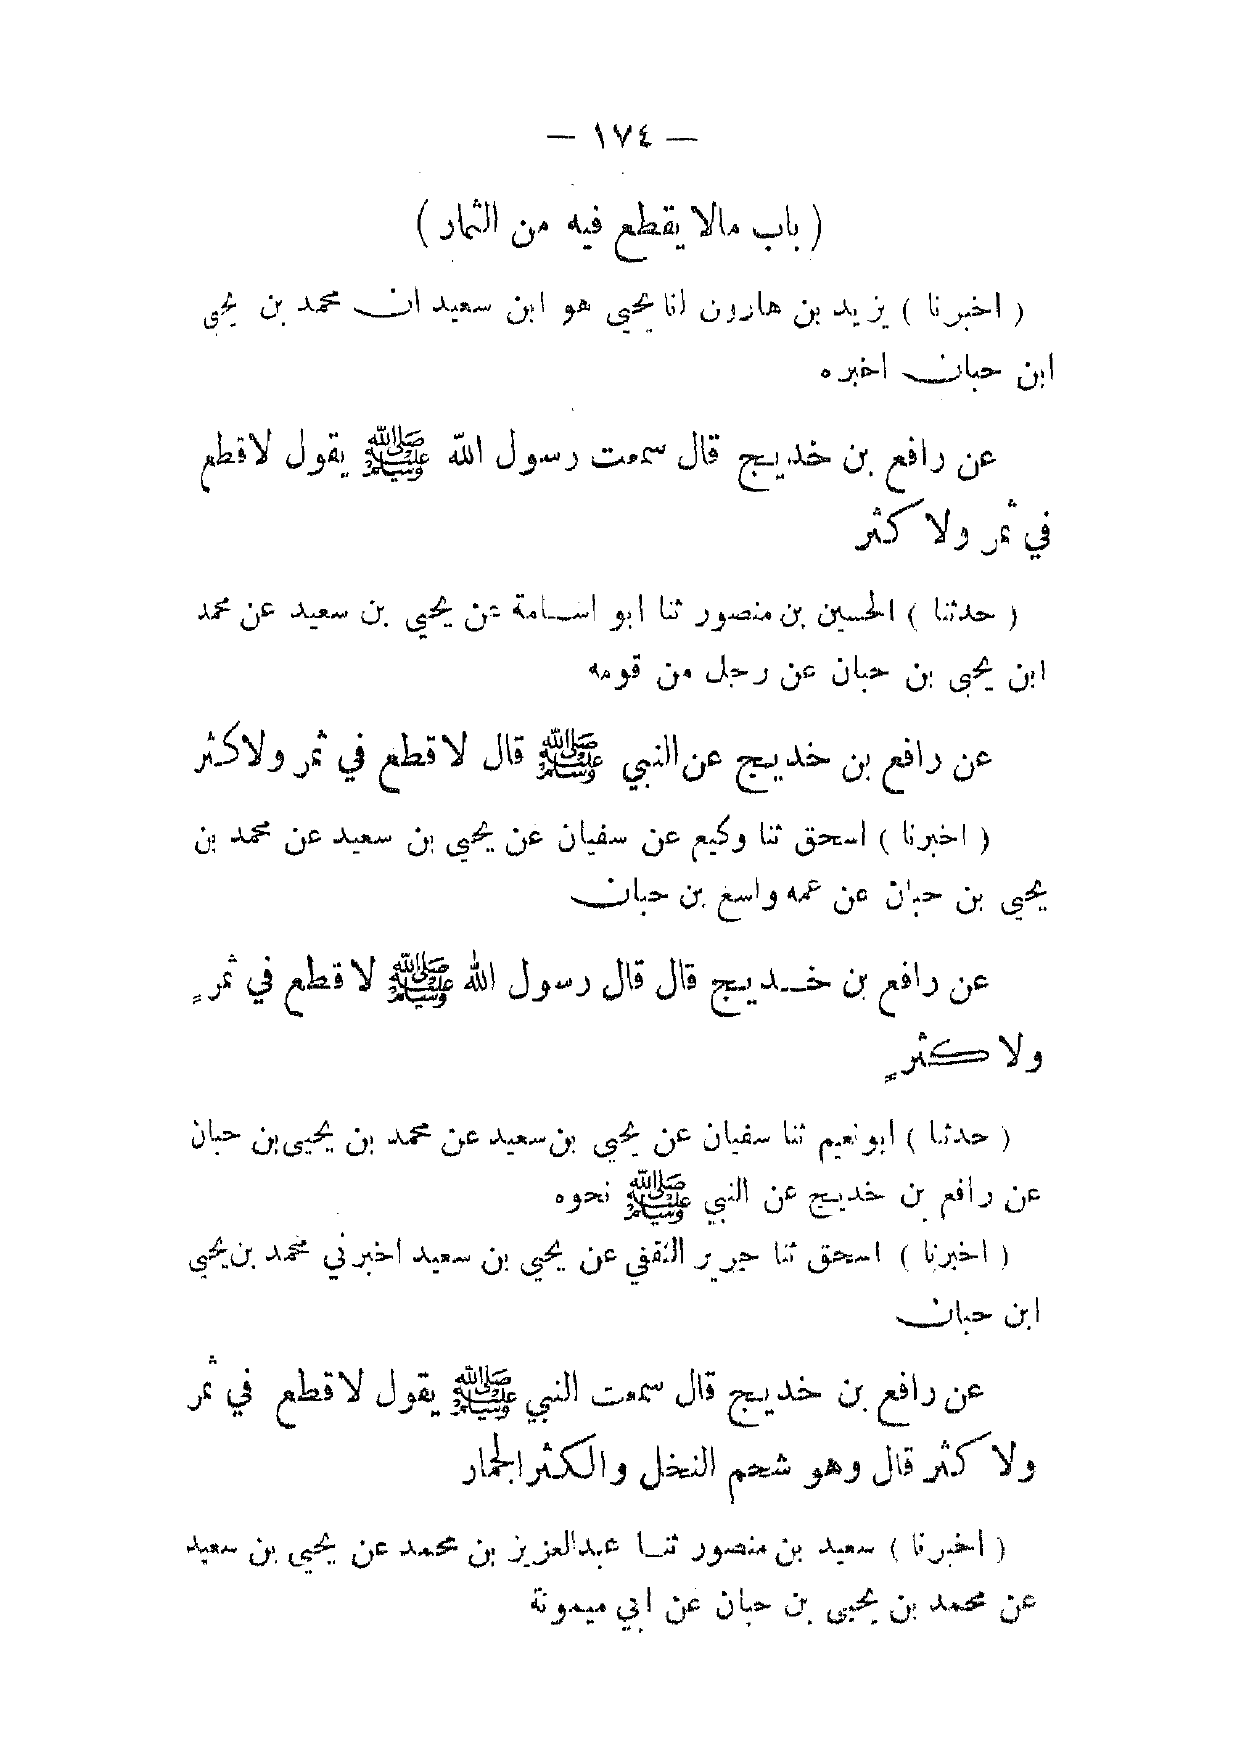 — ١٧٤ —
( باب مالا يقطع فيه من الثمار )
( اخبرنا ) يزيد بن هارون انا يحيى هو ابن سعيد ان محمد بن يحيى
ابن حبان اخبره
عن رافع بن خديج قال سمعت رسول الله ﷺ يقول لاقطع
في ثمر ولا كثر
( حدثنا ) الحسين بن منصور ثنا ابو اسامة عن يحيى بن سعيد عن محمد
ابن يحيى بن حبان عن رجل من قومه
عن رافع بن خديج عن النبي ﷺ قال لا قطع في ثمر ولا كثر
( اخبرنا ) اسحق ثنا وكيع عن سفيان عن يحيى بن سعيد عن محمد بن
يحيى بن حبان عن عمه واسع بن حبان
عن رافع بن خديج قال قال رسول الله ﷺ لا قطع في ثمرٍ
ولا كثرٍ
( حدثنا ) ابو نعيم ثنا سفيان عن يحيى بن سعيد عن محمد بن يحيى بن حبان
عن رافع بن خديج عن النبي ﷺ نحوه
( اخبرنا ) اسحق ثنا جرير الثقفي عن يحيى بن سعيد اخبرني محمد بن يحيى
ابن حبان
عن رافع بن خديج قال سمعت النبي ﷺ يقول لا قطع في ثمر
ولا كثر قال وهو شحم النخل والكثر الجمار
( اخبرنا ) سعيد بن منصور ثنا عبدالعزيز بن محمد عن يحيى بن سعيد
عن محمد بن يحيى بن حبان عن ابي ميمونة